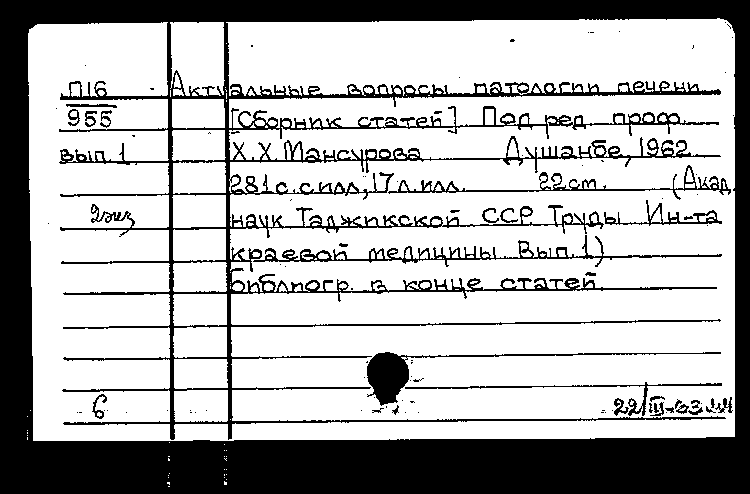 П16 Актуальные вопросы патологии печени
955 [Сборник статей] Под ред. проф.
вып. 1 Х.Х. Мансурова Душанбе, 1962.
281 с. с илл., 17 л. илл. 22 см. (Акад.
2 экз наук Таджикской ССР. Труды Ин-та
краевой медицины Вып. 1)
библиогр. в конце статей.
6 22/III-63